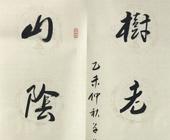 樹老
乙未仲秋
山陰